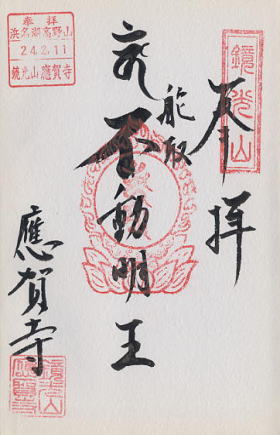 奉拝
浜名湖高野山
24.2.11
鏡光山 應賀寺
鏡光山
奉拝
厄除
不動明王
應賀寺
鏡光山
應賀寺